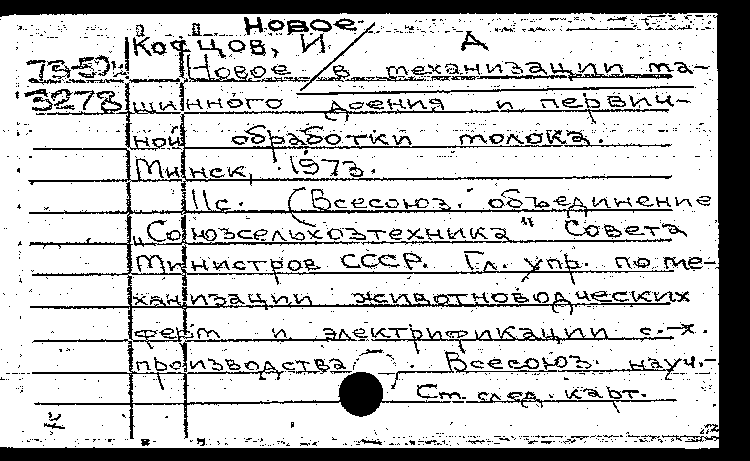 Новое
Косцов, И А
73-52
Новое в механизации ма-
3278 шинного доения и первич-
ной обработки молока.
Минск, 1973.
11с. (Всесоюз. объединение
„Союзсельхозтехника" Совета
Министров СССР. Гл. упр. по ме-
ханизации животноводческих
ферм и электрификации с.-х.
производства. Всесоюз. науч.-
См. след. карт.